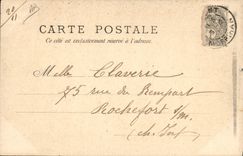 CARTE POSTALE
Ce côté est exclusivement réservé à l'adresse.
Mlle Claverie
75 rue du Rempart
Rochefort s/m.
(ch. Inf)